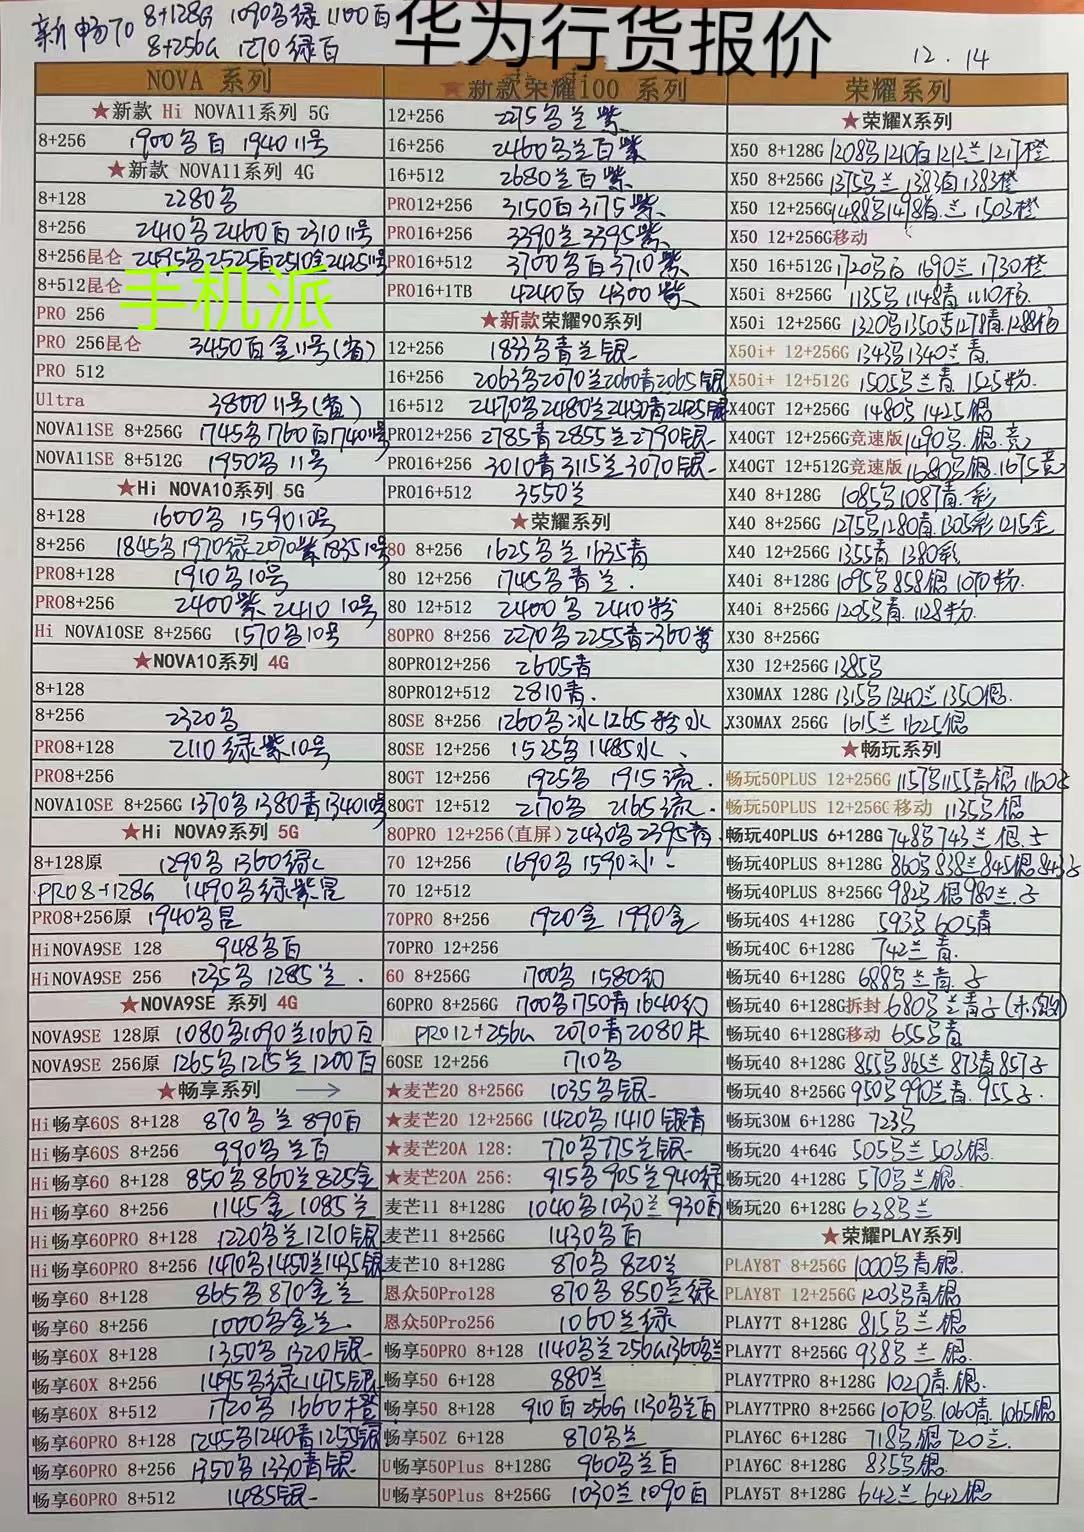 新畅70 8+128G 1090名绿 1100百
8+256G 1270绿百
华为行货报价
12.14
手机派
NOVA 系列
★新款 Hi NOVA11系列 5G
8+256 1900名百 1940 11号
★新款 NOVA11系列 4G
8+128 2280名
8+256 2410名2460百2310 11号
8+256昆仑 2495名2525百2510金2425 11号
8+512昆仑
PRO 256
PRO 256昆仑 3450百金11号(省)
PRO 512
Ultra 3800 11号(省)
NOVA11SE 8+256G 1745名1760百1740 11号
NOVA11SE 8+512G 1950名 11号
★Hi NOVA10系列 5G
8+128 1600名 1590 10号
8+256 1845名1970绿2070紫1835 10号
PRO8+128 1910名10号
PRO8+256 2400紫 2410 10号
Hi NOVA10SE 8+256G 1570名10号
★NOVA10系列 4G
8+128
8+256 2320名
PRO8+128 2110绿紫10号
PRO8+256
NOVA10SE 8+256G 1370名1380青1340 10号
★Hi NOVA9系列 5G
8+128原 1290名 1360绿
PRO8+128G 1490名绿紫昆
PRO8+256原 1940名昆
HiNOVA9SE 128 948名百
HiNOVA9SE 256 1235名 1285兰.
★NOVA9SE 系列 4G
NOVA9SE 128原 1080名1090兰1060百
NOVA9SE 256原 1265名1215兰1200百
★畅享系列 →
Hi畅享60S 8+128 870名兰890百
Hi畅享60S 8+256 990名兰百
Hi畅享60 8+128 850名860兰825金
Hi畅享60 8+256 1145金1085兰
Hi畅享60PRO 8+128 1220名兰1210银
Hi畅享60PRO 8+256 1470名1450兰1435银
畅享60 8+128 865名870金兰
畅享60 8+256 1000名金兰.
畅享60X 8+128 1350名1320银
畅享60X 8+256 1495名绿1475银
畅享60X 8+512 1720名 1660橙
畅享60PRO 8+128 1245名1240青1255银
畅享60PRO 8+256 1350名1330青银
畅享60PRO 8+512 1485银
★新款荣耀100 系列
12+256 2275名兰紫
16+256 2460名兰百紫
16+512 2680兰百紫
PRO12+256 3150百3175紫
PRO16+256 3390兰3395紫
PRO16+512 3700名百3710紫
PRO16+1TB 4240百 4300紫
★新款荣耀90系列
12+256 1833名青兰银
16+256 2063名2070兰2060青2065银
16+512 2470名2480兰2450青2425银
PRO12+256 2785青2855兰2790银
PRO16+256 3010青3115兰3070银
PRO16+512 3550兰
★荣耀系列
80 8+256 1625名兰1635青
80 12+256 1745名青兰.
80 12+512 2400名 2410粉
80PRO 8+256 2270名2255青2360紫
80PRO12+256 2605青
80PRO12+512 2810青.
80SE 8+256 1260名冰1265粉冰
80SE 12+256 1525名1485冰
80GT 12+256 1925名 1915流.
80GT 12+512 2170名 2165流.
80PRO 12+256(直屏) 2430名2395青
70 12+256 1690名1590冰
70 12+512
70PRO 8+256 1920金 1990金
70PRO 12+256
60 8+256G 1700名 1580幻
60PRO 8+256G 1700名1750青1640幻
PRO12+256G 2070青2080朱
60SE 12+256 1710名
★麦芒20 8+256G 1035名银
★麦芒20 12+256G 1420名1410银青
★麦芒20A 128: 770名775兰银
★麦芒20A 256: 915名905兰940绿
麦芒11 8+128G 1040名1030兰930百
麦芒11 8+256G 1430名百
麦芒10 8+128G 870名820兰
恩众50Pro128 870名850兰绿
恩众50Pro256 1060兰绿
畅享50PRO 8+128 1140名兰256G1360名兰
畅享50 6+128 880兰
畅享50 8+128 910百256G1130名兰百
畅享50Z 6+128 870名兰
U畅享50Plus 8+128G 960名兰百
U畅享50Plus 8+256G 1030兰1090百
荣耀系列
★荣耀X系列
X50 8+128G 1208名1210百1212兰1217橙
X50 8+256G 1375名兰1383百1383橙
X50 12+256G 1488名1498百兰1503橙
X50 12+256G移动
X50 16+512G 1720名百1690兰1730橙
X50i 8+256G 1135名1148青1110杨
X50i 12+256G 1320名1350青1278青1288杨
X50i+ 12+256G 1343名1340兰青
X50i+ 12+512G 1505名兰青1525粉.
X40GT 12+256G 1480名1425银
X40GT 12+256G竞速版 1490名.银.竞
X40GT 12+512G竞速版 1680名银.1675竞
X40 8+128G 1085名1087青.彩
X40 8+256G 1275名1280青.1305彩1215金
X40 12+256G 1355青1380彩
X40i 8+128G 1095名858银1070粉.
X40i 8+256G 1205名青.1128粉.
X30 8+256G
X30 12+256G 1385名
X30MAX 128G 1315名1340兰1350银.
X30MAX 256G 1615兰1625银
★畅玩系列
畅玩50PLUS 12+256G 1157名1155青银1160子
畅玩50PLUS 12+256G移动 1135名银
畅玩40PLUS 6+128G 748名743兰银.子
畅玩40PLUS 8+128G 860名838兰845银843子
畅玩40PLUS 8+256G 982名银980兰.子
畅玩40S 4+128G 593名605青
畅玩40C 6+128G 742兰青.
畅玩40 6+128G 688名兰青.子
畅玩40 6+128G拆封 680名兰青子(未激)
畅玩40 6+128G移动 655名青
畅玩40 8+128G 855名865兰873青857子
畅玩40 8+256G 950名990兰青.955子.
畅玩30M 6+128G 723名
畅玩20 4+64G 505名兰503银.
畅玩20 4+128G 570名兰银
畅玩20 6+128G 638名兰
★荣耀PLAY系列
PLAY8T 8+256G 1000名青银.
PLAY8T 12+256G 1203名青银
PLAY7T 8+128G 815名兰银
PLAY7T 8+256G 938名兰银.
PLAY7TPRO 8+128G 1020青.银.
PLAY7TPRO 8+256G 1070名1060青.1065银
PLAY6C 6+128G 718名银720兰.
PlAY6C 8+128G 835名银.
PLAY5T 8+128G 642兰642银